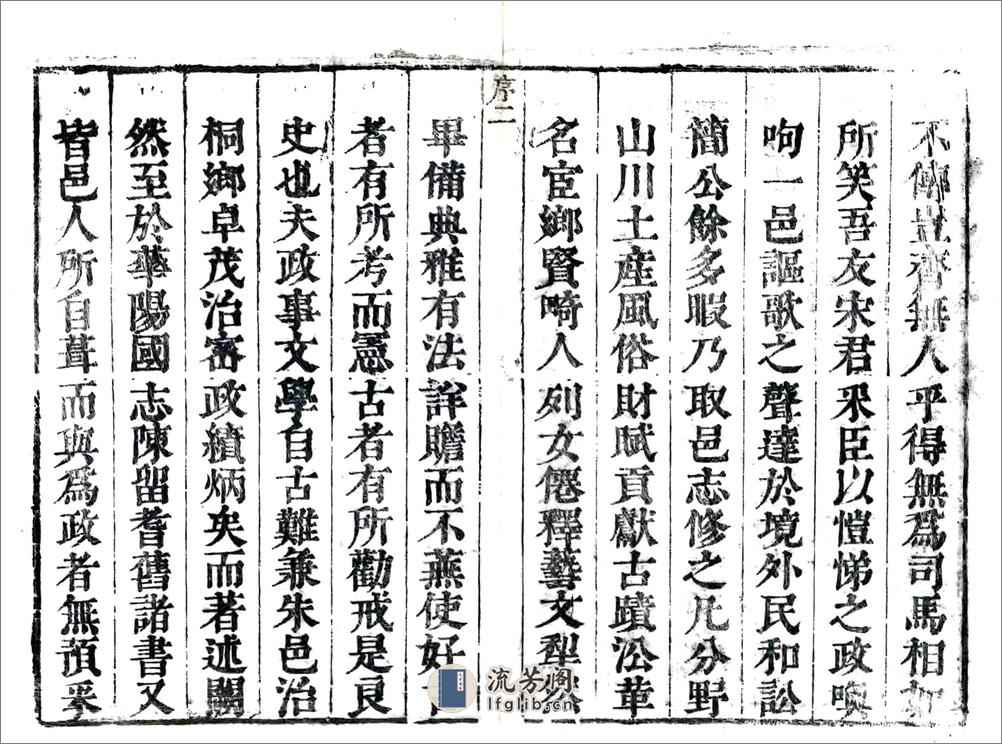 不傳豈齊無人乎得無為司馬相如
所笑吾友宋君釆臣以愷悌之政噢
咰一邑謳歌之聲達於境外民和訟
簡公餘多暇乃取邑志修之凡分野
山川土產風俗財賦貢獻古蹟㳂革
名宦鄉賢畸人列女僊釋藝文犁然
序二
畢備典雅有法詳贍而不蕪使好
者有所考而憲古者有所勸戒是良
史也夫政事文學自古難兼朱邑治
桐鄉卓茂治密政績炳矣而著述闕
然至於華陽國志陳留耆舊諸書又
皆邑人所自葺而與為政者無預乎
流芳阁
lfglib.cn